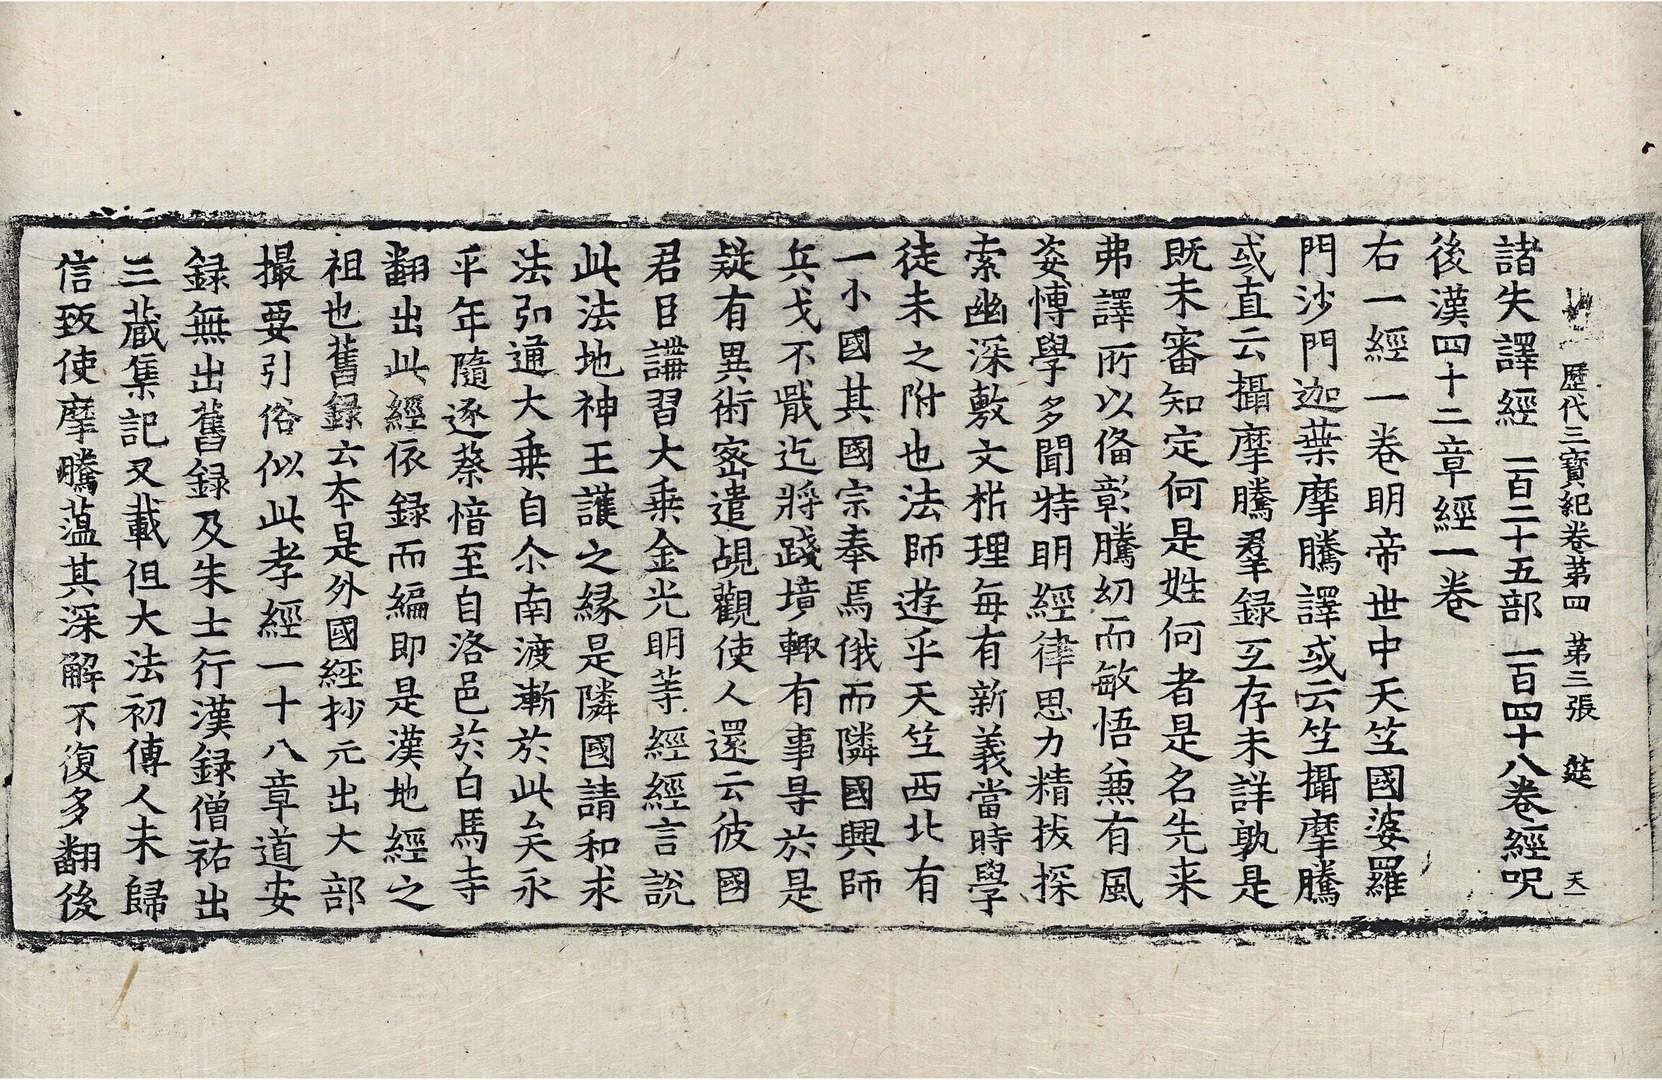 歷代三寶紀卷第四 第三張 莚 天一
諸失譯經 一百二十五部 一百四十八卷經呪
後漢四十二章經一卷
右一經一卷明帝世中天竺國婆羅
門沙門迦葉摩騰譯或云竺攝摩騰
或直云攝摩騰羣録互存未詳孰是
既未審知定何是姓何者是名先来
弗譯所以俻彰騰幼而敏悟兼有風
姿愽學多聞特明經律思力精拔探
索幽深敷文析理每有新義當時學
徒未之附也法師遊乎天竺西北有
一小國其國宗奉焉俄而隣國興師
兵戈不戢迄將踐境輙有事㝵於是
疑有異術密遣覘觀使人還云彼國
君目講習大乗金光明等經經言說
此法地神王護之縁是隣國請和求
法弘通大乗自尒南渡漸於此矣永
平年隨逐蔡愔至自洛邑於白馬寺
翻出此經依録而編即是漢地經之
祖也舊録云夲是外國經抄元出大部
撮要引俗似此孝經一十八章道安
録無出舊録及朱士行漢録僧祐出
三藏集記又載但大法初傳人未歸
信致使摩騰蕰其深解不復多翻後